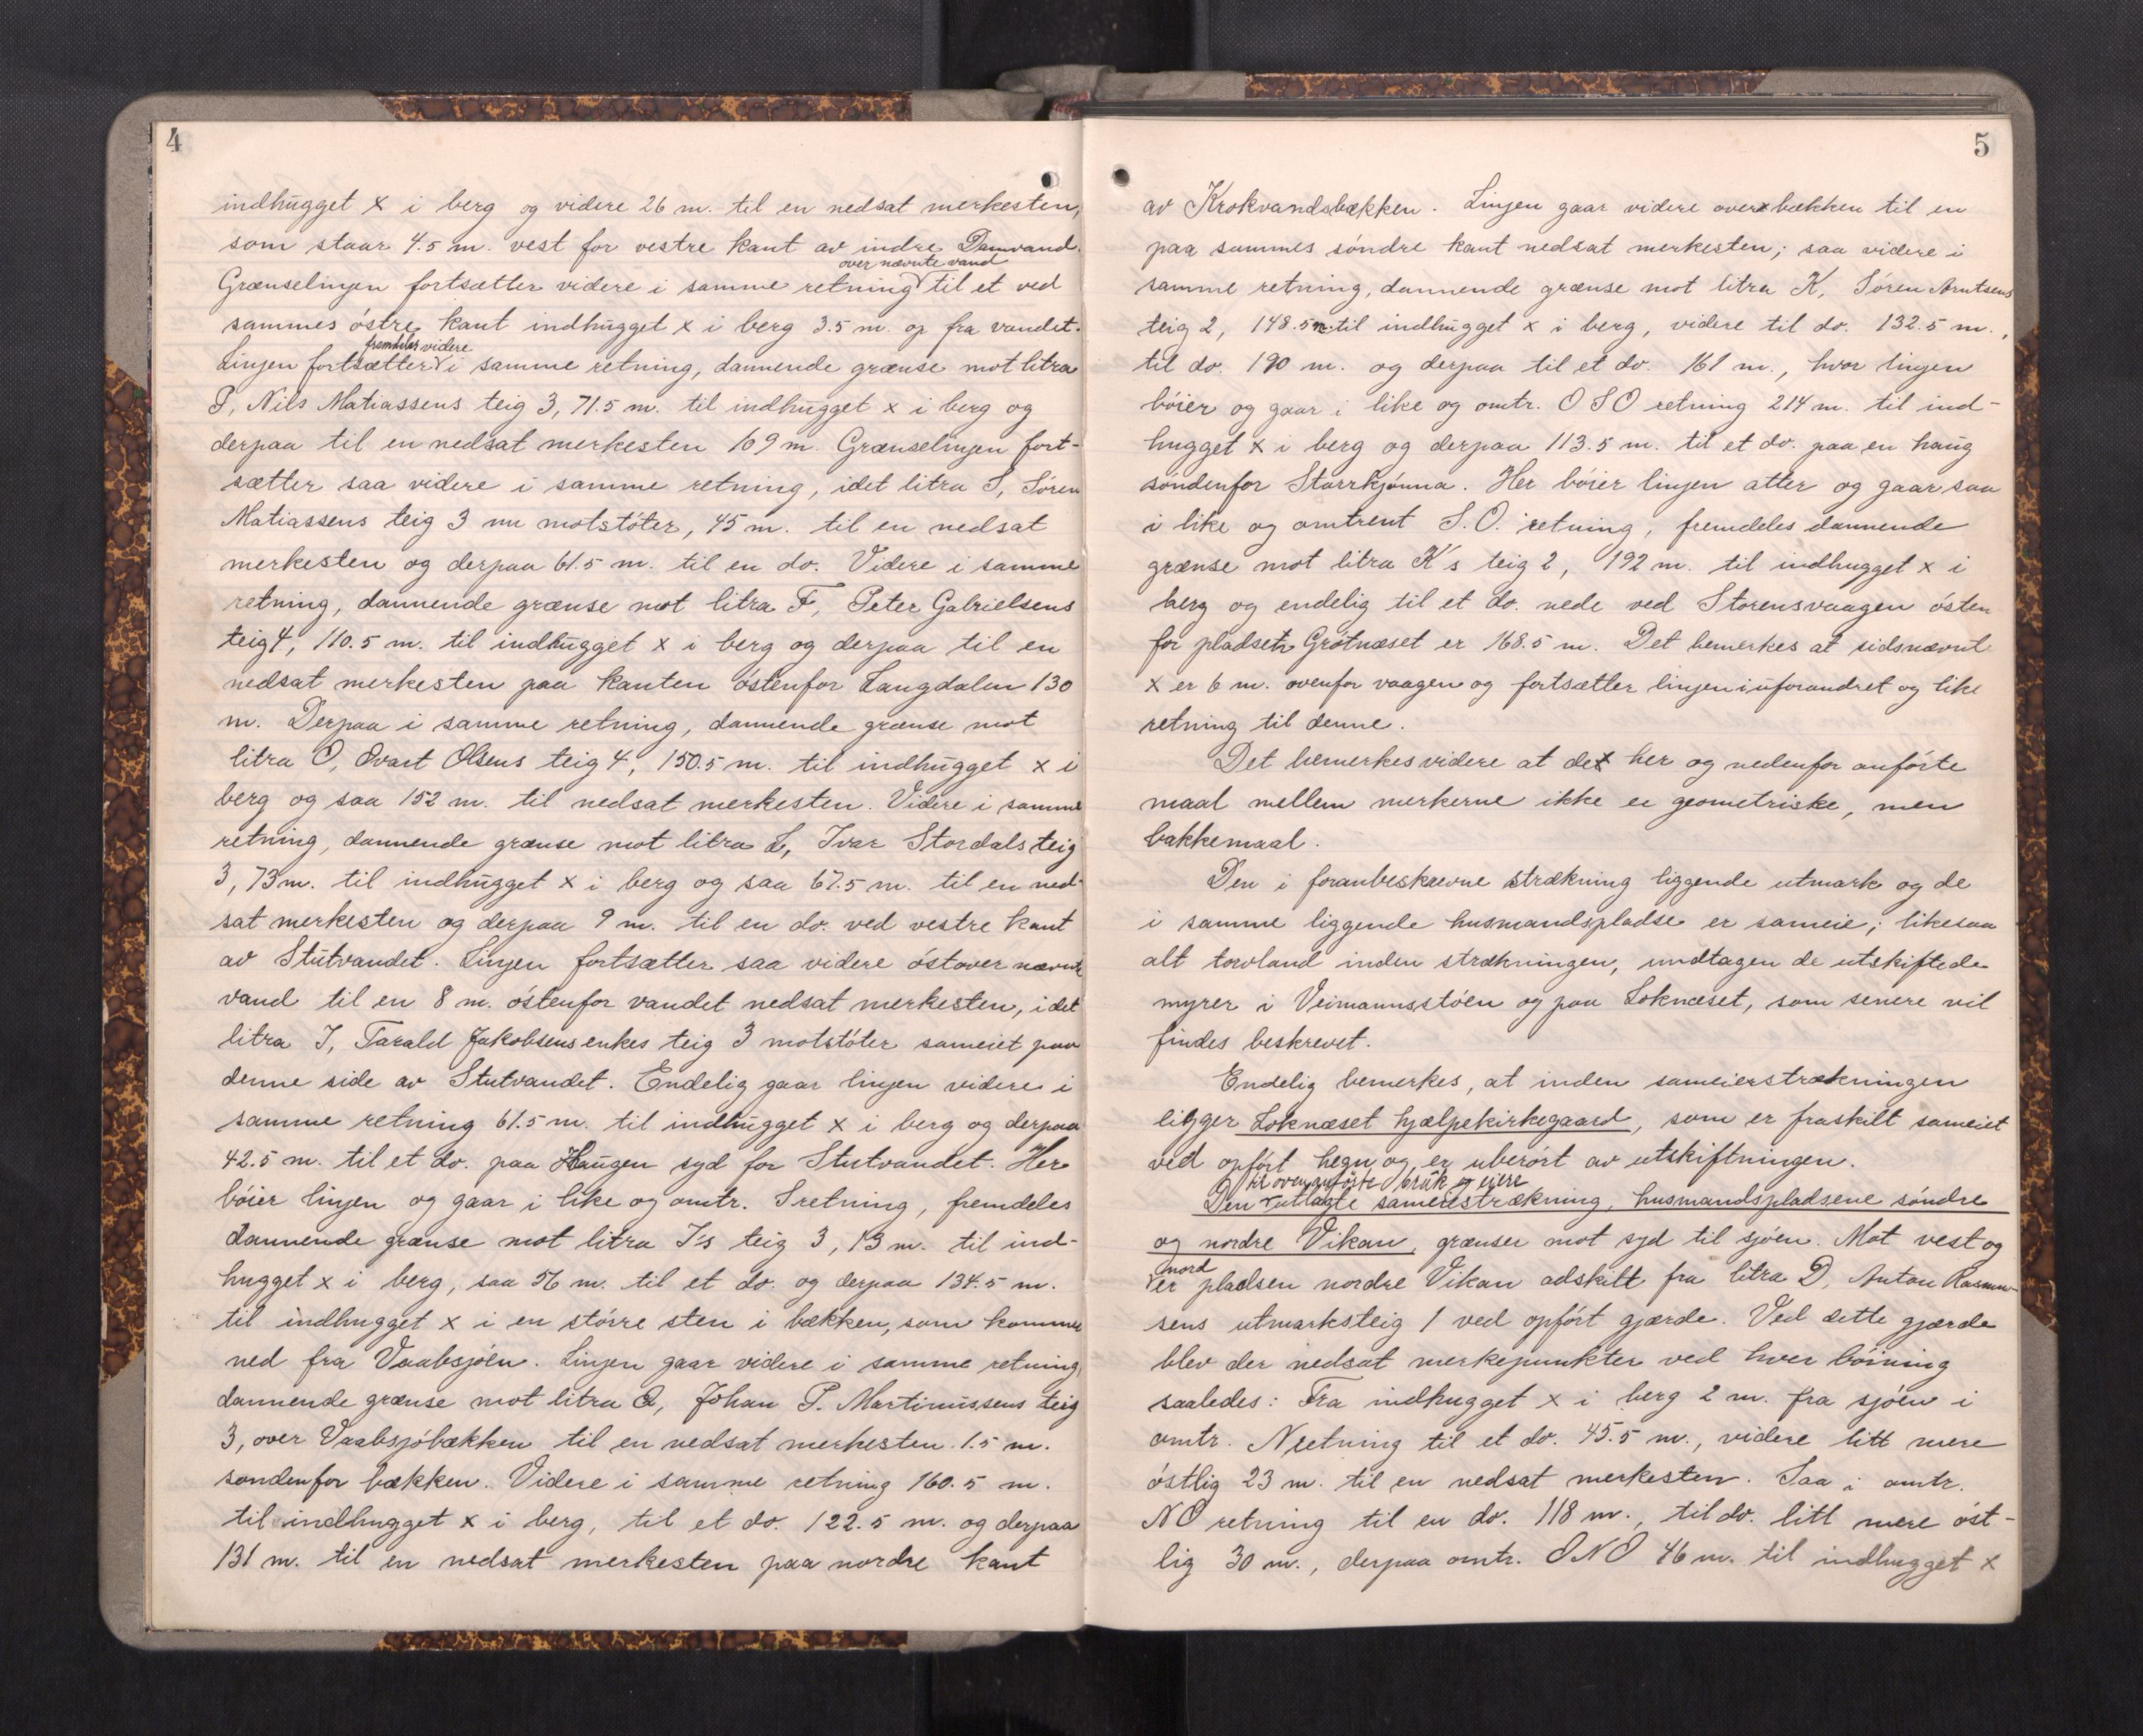 4
indhugget x i berg og videre 26 m. til en nedsat merkesten,
som staar 4.5 m. vest for vestre kant av indre Damvand.
over nævnte vand
Grænselinjen fortsætter videre i samme retning til et ved
sammes østre kant indhugget x i berg 3.5 m. op fra vandet.
fremdeles videre
Linjen fortsætter i samme retning, dannende grænse mot litra
P, Nils Matiassens teig 3, 71.5 m. til indhugget x i berg og
derpaa til en nedsat merkesten 109 m. Grænselinjen fort-
sætter saa videre i samme retning, idet litra S, Søren
Matiassens teig 3 nu motstøter, 45 m. til en nedsat
merkesten og derpaa 61.5 m. til en do. Videre i samme
retning, dannende grænse mot litra F, Peter Gabrielsens
teig 4, 110.5 m. til indhugget x i berg og derpaa til en
nedsat merkesten paa kanten østenfor Langdalen 130
m. Derpaa i samme retning, dannende grænse mot
litra O, Evart Olsens teig 4, 150.5 m. til indhugget x i
berg og saa 152 m. til nedsat merkesten. Videre i samme
retning, dannende grænse mot litra L, Ivar Stordals teig
3, 73 m. til indhugget x i berg og saa 67.5 m. til en ned-
sat merkesten og derpaa 9 m. til en do. ved vestre kant
av Stutvandet. Linjen fortsætter saa videre østover nævnte
vand til en 8 m. østenfor vandet nedsat merkesten, idet
litra I, Tarald Jakobsens enkes teig 3 motstøter sameiet paa
denne side av Stutvandet. Endelig gaar linjen videre i
samme retning 61.5 m. til indhugget x i berg og derpaa
42.5 m. til et do. paa Haugen syd for Stutvandet. Her
bøier linjen og gaar i like og omtr. S retning, fremdeles
dannende grænse mot litra I's teig 3, 13 m. til ind-
hugget x i berg, saa 56 m. til et do. og derpaa 134.5 m.
til indhugget x i en større sten i bækken, som kommer
ned fra Vaabsjøen. Linjen gaar videre i samme retning,
dannende grænse mot litra Q, Johan P. Martinussens teig
3, over Vaabsjøbækken til en nedsat merkesten 1.5 m.
søndenfor bækken. Videre i samme retning 160.5 m.
til indhugget x i berg, til et do. 122.5 m. og derpaa
131 m. til en nedsat merkesten paa nordre kant
5
av Krokvandsbækken. Linjen gaar videre over bækken til en
paa sammes søndre kant nedsat merkesten; saa videre i
samme retning, dannende grænse mot litra K, Søren Arntsens
teig 2, 148.5 m til indhugget x i berg, videre til do. 132.5 m.,
til do. 190 m. og derpaa til et do. 161 m., hvor linjen
bøier og gaar i like og omtr. OSO retning 214 m. til ind-
hugget x i berg og derpaa 113.5 m. til et do. paa en haug
søndenfor Starrkjønna. Her bøier linjen atter og gaar saa
i like og omtrent S.O. retning, fremdeles dannende
grænse mot litra K's teig 2, 192 m. til indhugget x i
berg og endelig til et do. nede ved Storensvaagen østen
for pladsen Grøtnæset er 168.5 m. Det bemerkes at sidsnævnte
x er 6 m. ovenfor vaagen og fortsætter linjen i uforandret og like
retning til denne.
Det bemerkes videre at de her og nedenfor anførte
maal mellem merkerne ikke er geometriske, men
bakkemaal.
Den i foranbeskrevne strækning liggende utmark og de
i samme liggende husmandspladse er sameie; likesaa
alt torvland inden strækningen, undtagen de utskiftede
myrer i Veimannsstøen og paa Loknæset, som senere vil
findes beskrevet.
Endelig bemerkes, at inden sameierstrækningen
ligger Loknæset hjælpekirkegaard, som er fraskilt sameiet
ved opført hegn og er uberørt av utskiftningen.
til ovenanførte bruk og eiere
Den utlagte sameiestrækning, husmandspladsene søndre
og nordre Vikan, grænser mot syd til sjøen. Mot vest og
nord
er pladsen nordre Vikan adskilt fra litra D, Anton Rasmus-
sens utmarksteig 1 ved opført gjærde. Ved dette gjærde
blev der nedsat merkepunkter ved hver bøining
saaledes: Fra indhugget x i berg 2 m. fra sjøen i
omtr. N retning til et do. 45.5 m., videre litt mere
østlig 23 m. til en nedsat merkesten. Saa i omtr.
NO retning til en do. 118 m., til do. litt mere øst-
lig 30 m., derpaa omtr. ONO 46 m. til indhugget x